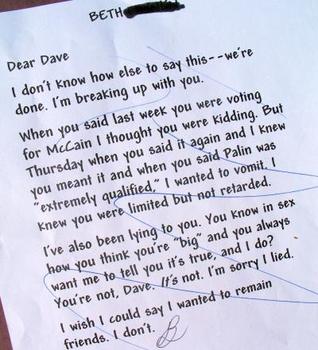 BETH
Dear Dave
I don't know how else to say this--we're
done. I'm breaking up with you.
When you said last week you were voting
for McCain I thought you were kidding. But
Thursday when you said it again and I knew
you meant it and when you said Palin was
"extremely qualified," I wanted to vomit. I
knew you were limited but not retarded.
I've also been lying to you. You know in sex
how you think you're "big" and you always
want me to tell you it's true, and I do?
You're not, Dave. It's not. I'm sorry I lied.
I wish I could say I wanted to remain
friends. I don't.
B